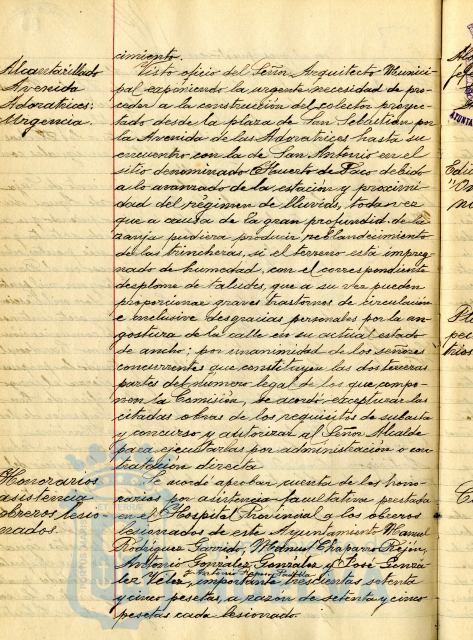 cimiento.
Alcantarillado
Avenida
Adoratrices:
Urgencia.
Visto oficio del Señor Arquitecto Munici-
pal exponiendo la urgente necesidad de pro-
ceder a la construcción del colector proyec-
tado desde la plaza de San Sebastián por
la Avenida de las Adoratrices hasta su
encuentro con la de San Antonio en el
sitio denominado Huerto de Paco debido
a lo avanzado de la estación y proximi-
dad del régimen de lluvias, toda vez
que a causa de la gran profundid. de la
zanja pudiera producir reblandecimiento
de las trincheras, si el terreno esta impreg-
nado de humedad, con el correspondiente
desplome de taludes, que a su vez pueden
proporcionar graves trastornos de circulación
e inclusive desgracias personales por la an-
gostura de la calle en su actual estado
de ancho; por unanimidad de los señores
concurrentes que constituyen las dos terceras
partes del numero legal de los que compo-
nen la Comisión, se acordó exceptuar las
citadas obras de los requisitos de subasta
y concurso y autorizar al Señor Alcalde
para ejecutarlas por administración o con-
tratación directa
Honorarios
asistencia
obreros lesio-
nados.
Se acordó aprobar cuenta de los hono-
rarios por asistencia facultativa prestada
en el Hospital Provincial a los obreros
lesionados de este Ayuntamient. Manuel
Rodriguez Garrido, Manuel Chaparro Rejón,
Antonio Gonzalez Gonzalez y José Gonzá-
lez Velez, y Antonio importante trescientas setenta
y cinco pesetas, a razón de setenta y cinco
pesetas cada lesionado.